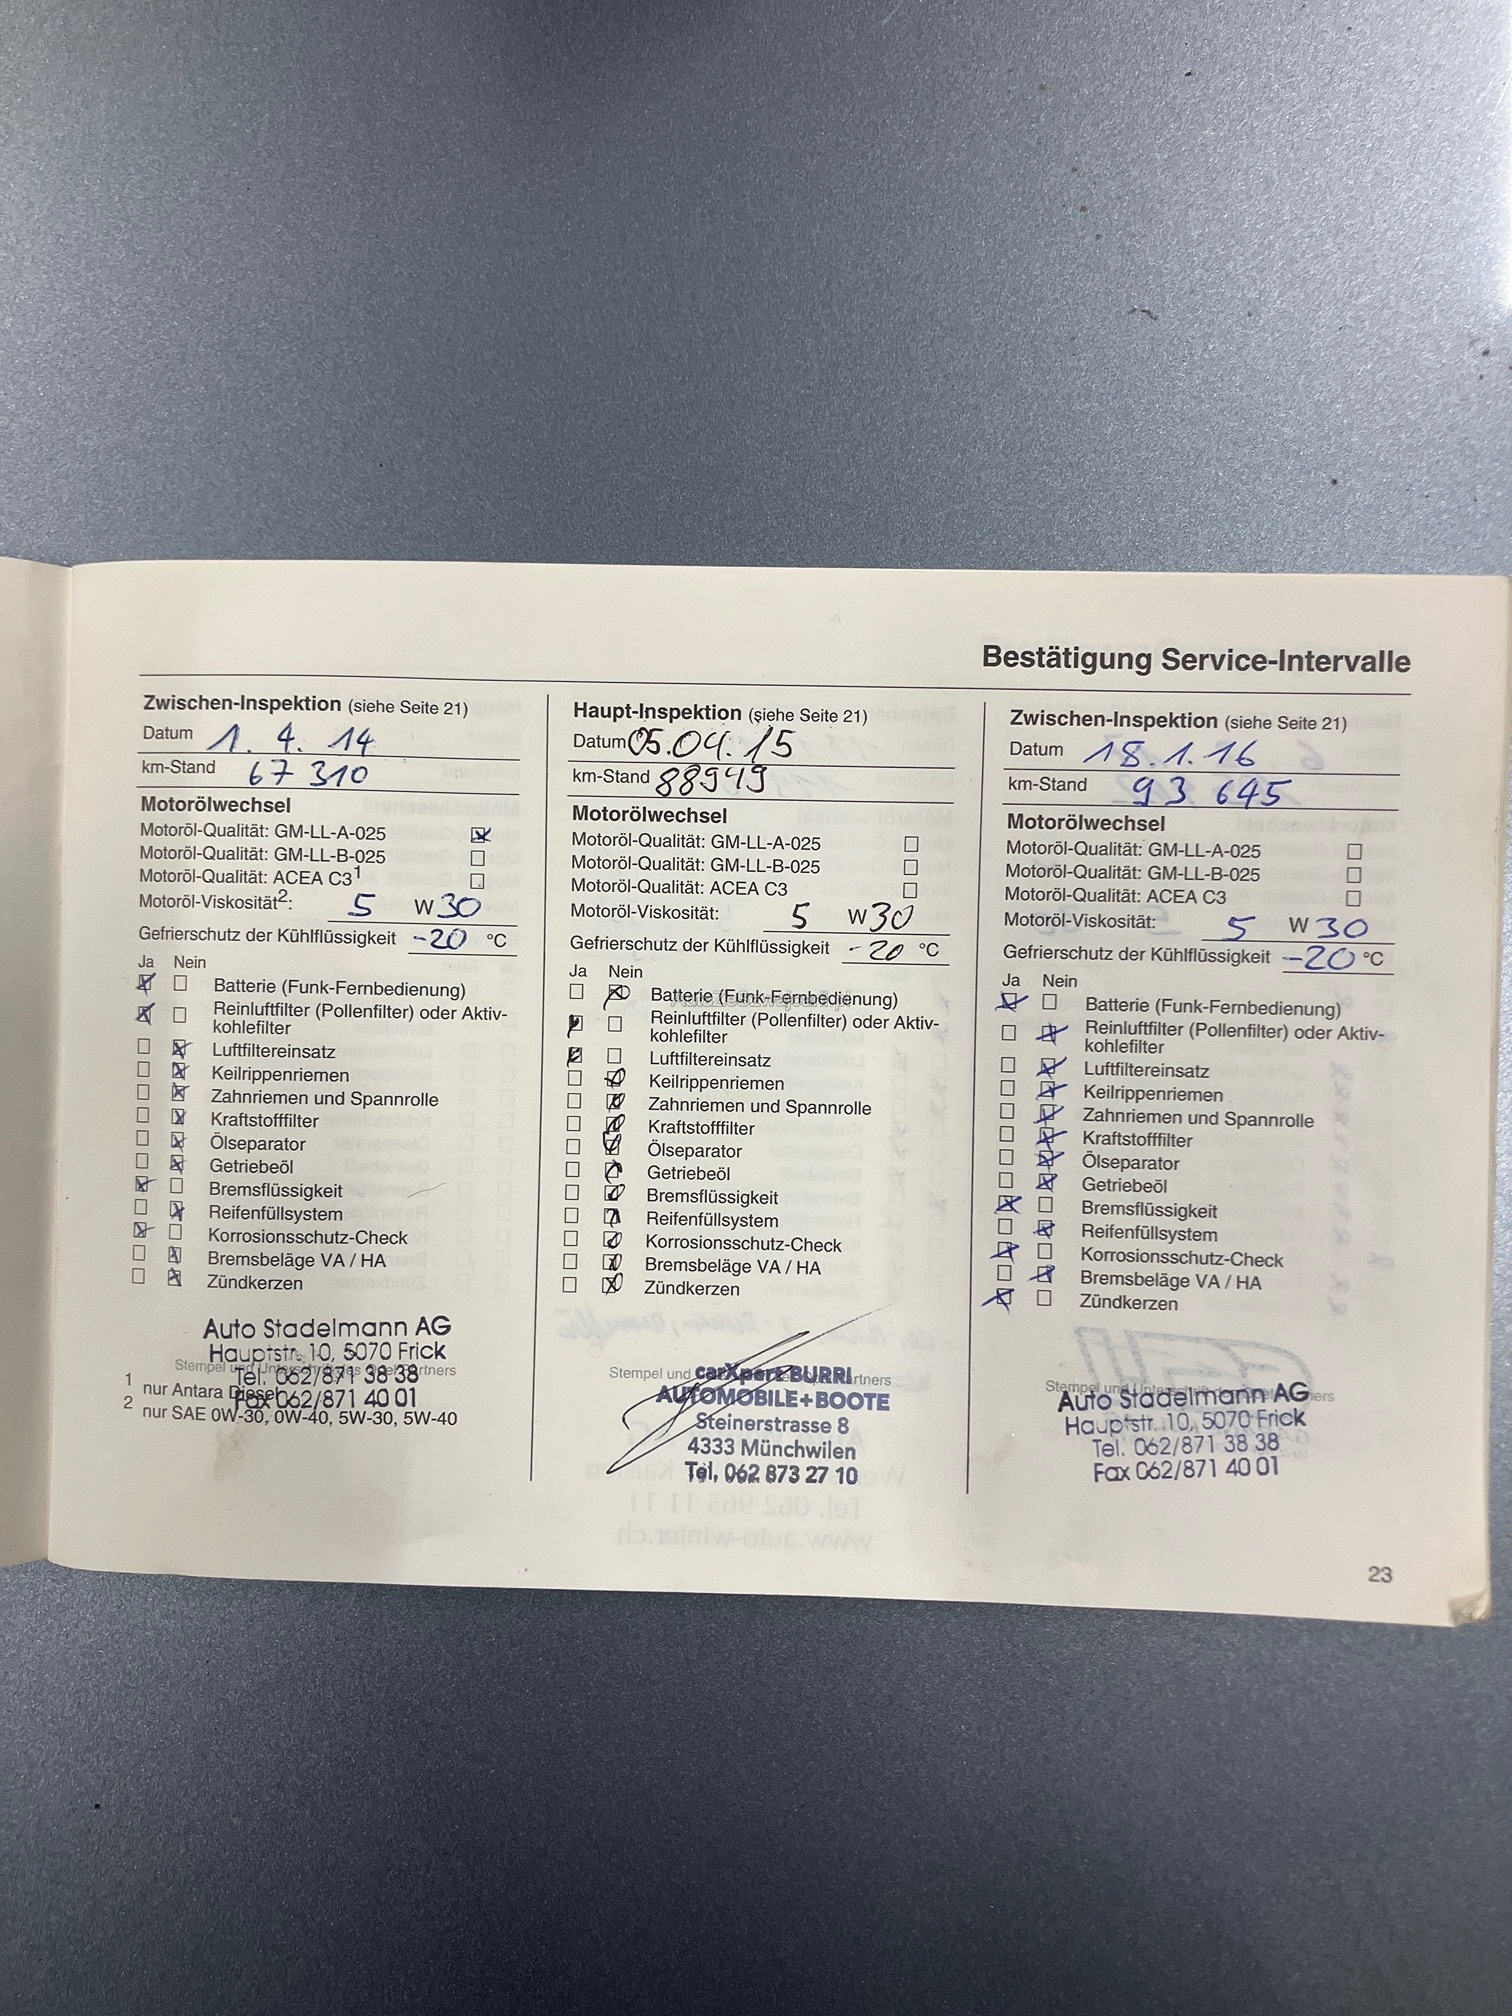 Bestätigung Service-Intervalle
Zwischen-Inspektion (siehe Seite 21)
Datum 1. 4. 14
km-Stand 67 310
Motorölwechsel
Motoröl-Qualität: GM-LL-A-025
Motoröl-Qualität: GM-LL-B-025
Motoröl-Qualität: ACEA C3¹
Motoröl-Viskosität²: 5 W 30
Gefrierschutz der Kühlflüssigkeit -20 °C
Ja Nein
Batterie (Funk-Fernbedienung)
Reinluftfilter (Pollenfilter) oder Aktiv-
kohlefilter
Luftfiltereinsatz
Keilrippenriemen
Zahnriemen und Spannrolle
Kraftstofffilter
Ölseparator
Getriebeöl
Bremsflüssigkeit
Reifenfüllsystem
Korrosionsschutz-Check
Bremsbeläge VA / HA
Zündkerzen
Auto Stadelmann AG
Hauptstr. 10, 5070 Frick
Stempel und Unterschrift des Opel Partners
Tel. 062/871 38 38
Fax 062/871 40 01
1 nur Antara Diesel
2 nur SAE 0W-30, 0W-40, 5W-30, 5W-40
Haupt-Inspektion (siehe Seite 21)
Datum 05.04.15
km-Stand 88949
Motorölwechsel
Motoröl-Qualität: GM-LL-A-025
Motoröl-Qualität: GM-LL-B-025
Motoröl-Qualität: ACEA C3
Motoröl-Viskosität: 5 W 30
Gefrierschutz der Kühlflüssigkeit -20 °C
Ja Nein
Batterie (Funk-Fernbedienung)
Reinluftfilter (Pollenfilter) oder Aktiv-
kohlefilter
Luftfiltereinsatz
Keilrippenriemen
Zahnriemen und Spannrolle
Kraftstofffilter
Ölseparator
Getriebeöl
Bremsflüssigkeit
Reifenfüllsystem
Korrosionsschutz-Check
Bremsbeläge VA / HA
Zündkerzen
Stempel und Partners
carXpert BURRI
AUTOMOBILE+BOOTE
Steinerstrasse 8
4333 Münchwilen
Tel. 062 873 27 10
Zwischen-Inspektion (siehe Seite 21)
Datum 18.1.16
km-Stand 93 645
Motorölwechsel
Motoröl-Qualität: GM-LL-A-025
Motoröl-Qualität: GM-LL-B-025
Motoröl-Qualität: ACEA C3
Motoröl-Viskosität: 5 W 30
Gefrierschutz der Kühlflüssigkeit -20 °C
Ja Nein
Batterie (Funk-Fernbedienung)
Reinluftfilter (Pollenfilter) oder Aktiv-
kohlefilter
Luftfiltereinsatz
Keilrippenriemen
Zahnriemen und Spannrolle
Kraftstofffilter
Ölseparator
Getriebeöl
Bremsflüssigkeit
Reifenfüllsystem
Korrosionsschutz-Check
Bremsbeläge VA / HA
Zündkerzen
Stempel und Unterschrift des Opel Partners
Auto Stadelmann AG
Hauptstr. 10, 5070 Frick
Tel. 062/871 38 38
Fax 062/871 40 01
23